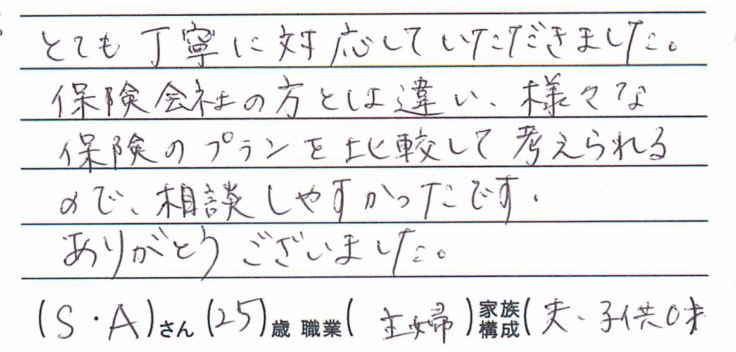 とても丁寧に対応していただきました。
保険会社の方とは違い、様々な
保険のプランを比較して考えられる
ので、相談しやすかったです.
ありがとうございました。
(S・A)さん(25)歳 職業(主婦)家族構成(夫、子供0才